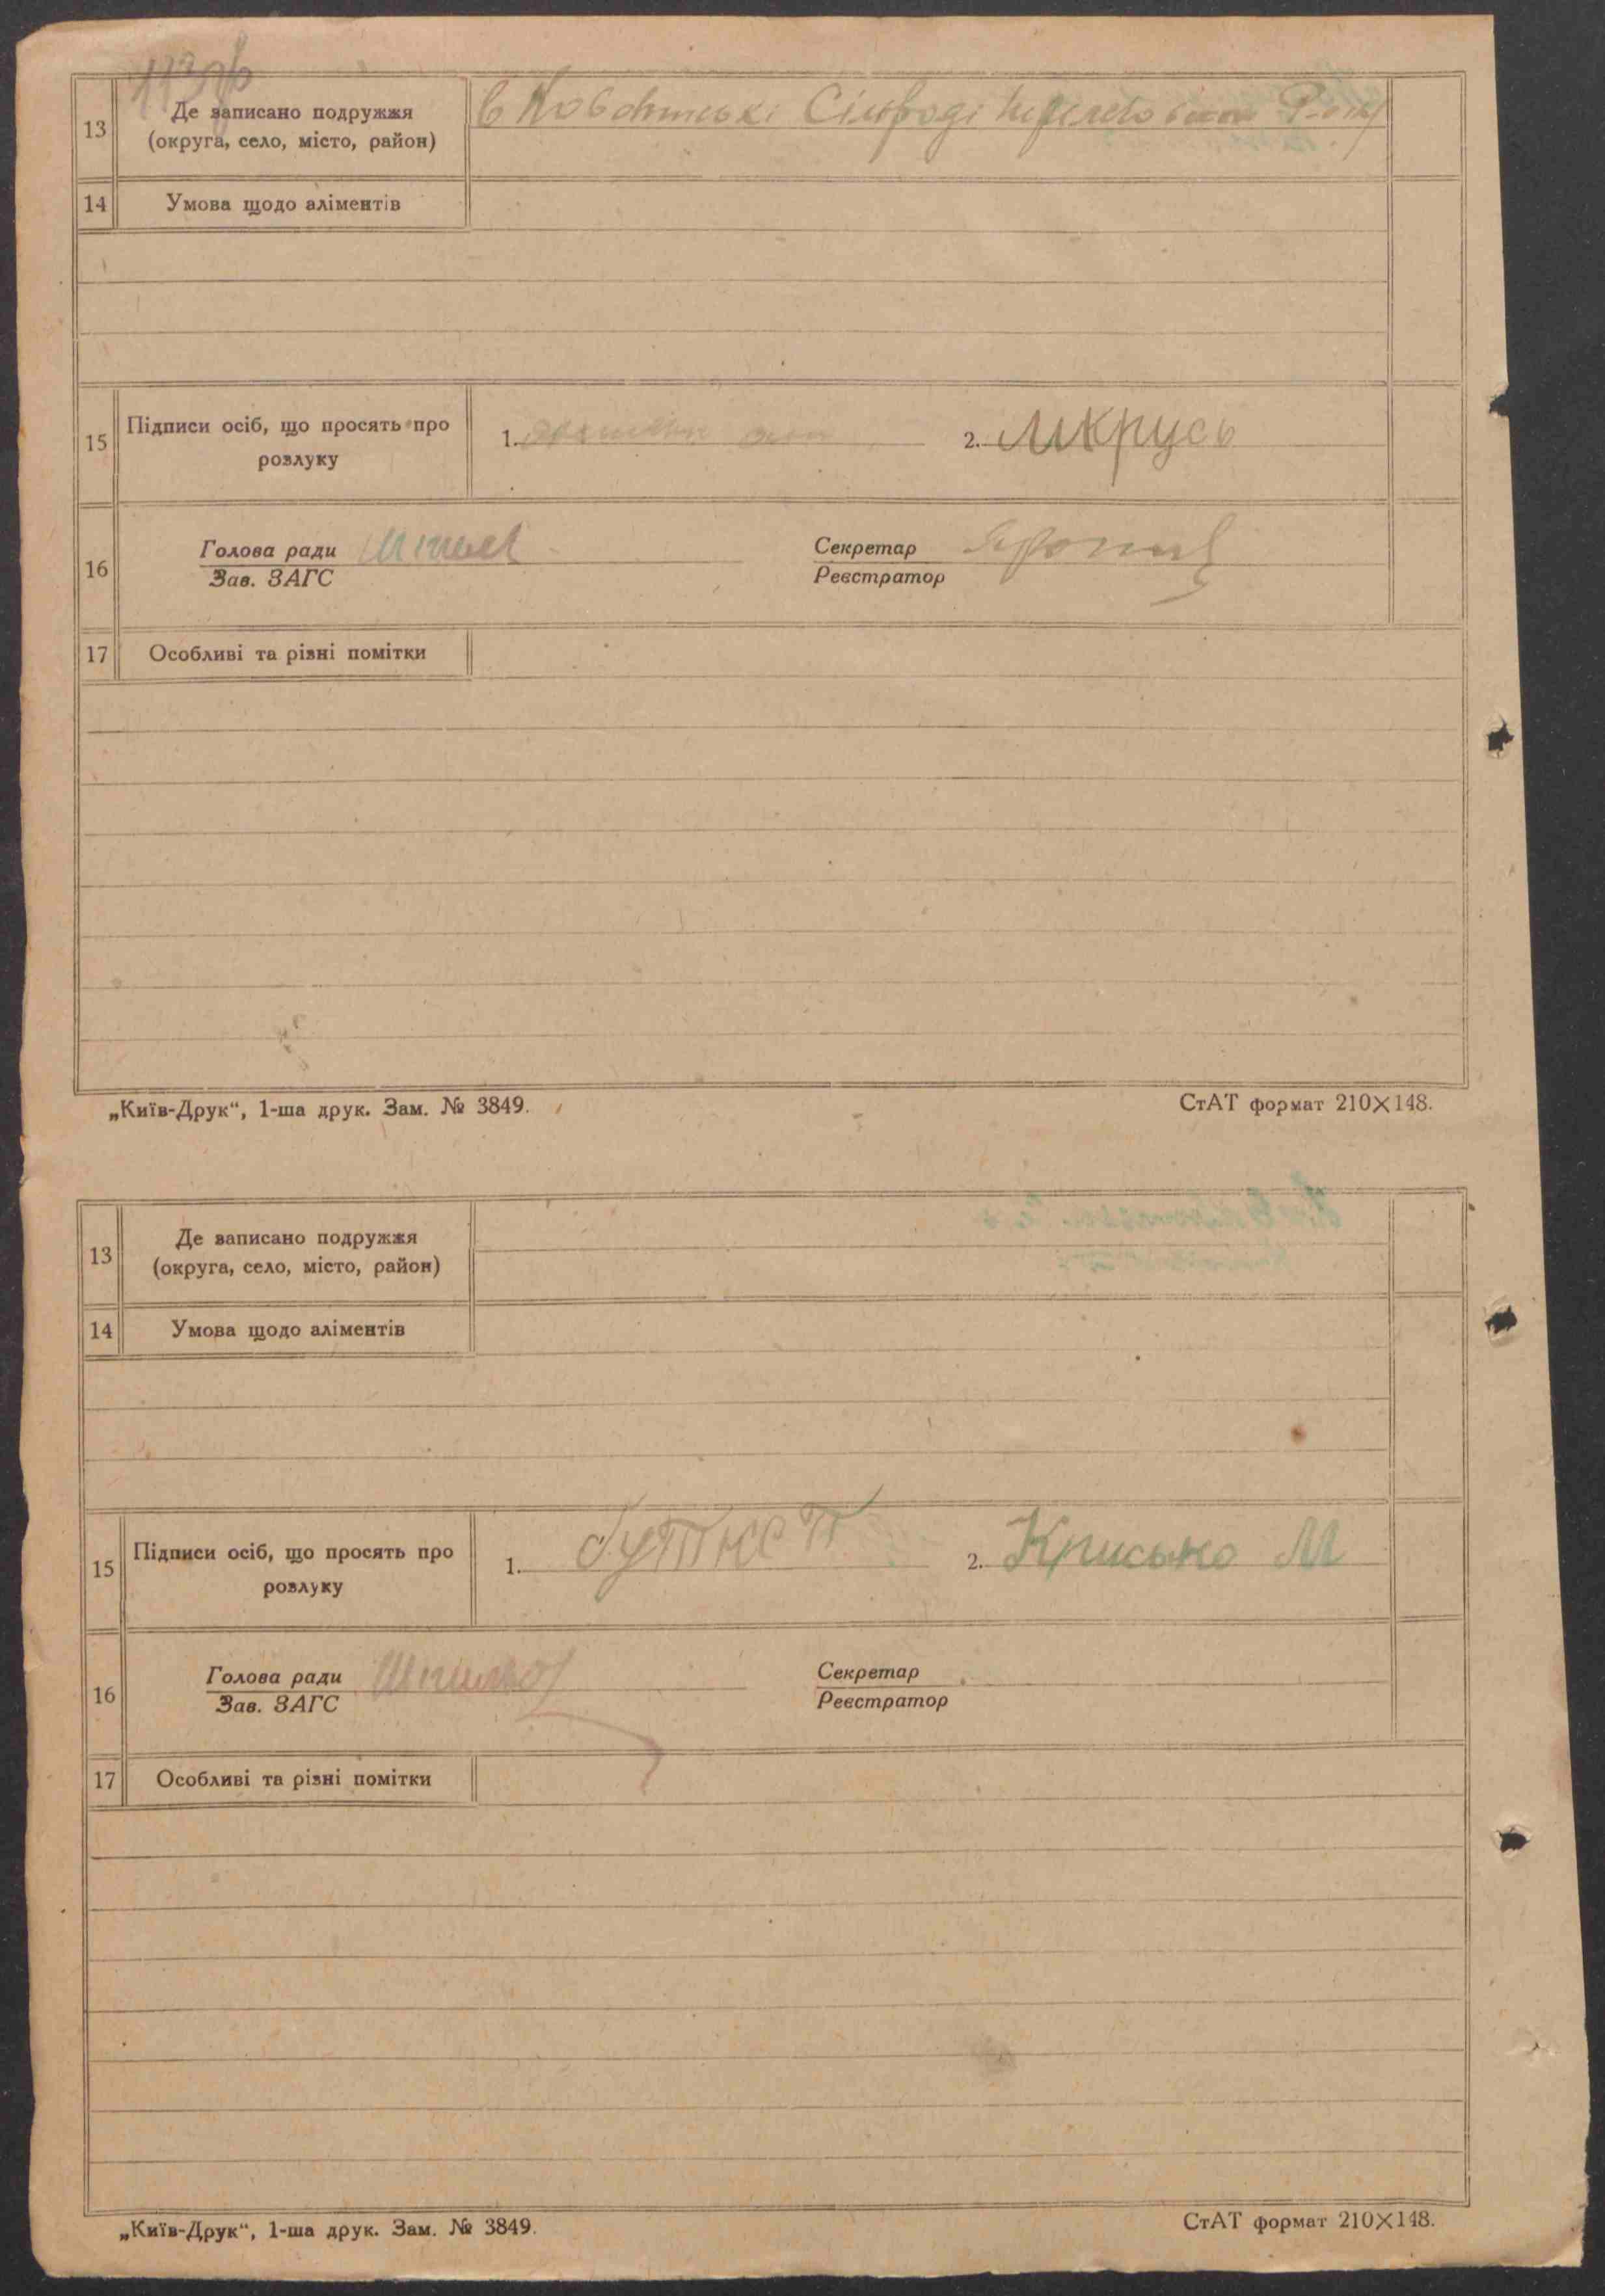 13
Де записано подружжя
(округа, село, місто, район)
в Сільраді
14
Умова щодо аліментів
15
Підписи осіб, що просять про
розлуку
1.
2. Мкрусь
16
Голова ради
Зав. ЗАГС
Секретар
Реєстратор
17
Особливі та різні помітки
„Київ-Друк“, 1-ша друк. Зам. № 3849.
СтАТ формат 210×148.
13
Де записано подружжя
(округа, село, місто, район)
14
Умова щодо аліментів
15
Підписи осіб, що просять про
розлуку
1.
2. Крисько М
16
Голова ради
Зав. ЗАГС
Секретар
Реєстратор
17
Особливі та різні помітки
„Київ-Друк“, 1-ша друк. Зам. № 3849.
СтАТ формат 210×148.